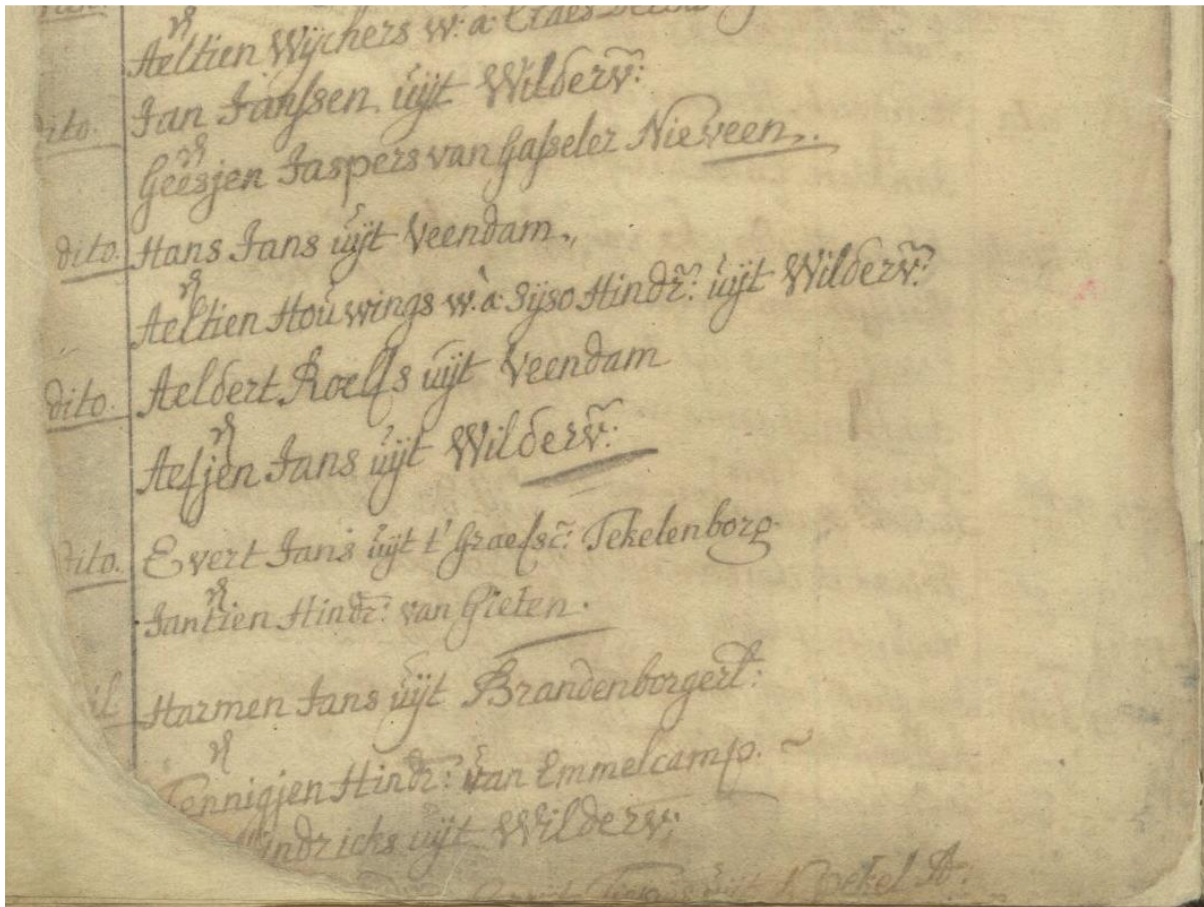 Aeltien Wijchers w: a: Claes
dito. Jan Janssen uijt Wilderv:
Geesjen Jaspers van Gasseler Nieveen.
dito. Hans Jans uijt Veendam.
Aeltien Houwings w: a: Sijso Hindr: uijt Wilderv:
dito. Aeldert Roelfs uijt Veendam
Aefjen Jans uijt Wilderv:
dito. Evert Jans uijt t' Graefsc: Tekelenborg.
Jantien Hindr: van Gieten.
Harmen Jans uijt Brandenborgerl:
Tennigjen Hindr: van Emmelcamp.
Hindricks uijt Wilderv:
uijt Pekel A: